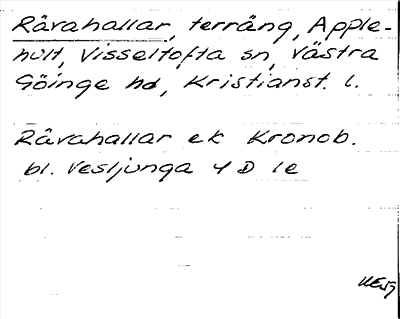 Råvahallar, terräng, Apple-
hult, Visseltofta sn, Västra
Göinge hd, Kristianst. l.
Råvahallar ek Kronob.
bl. Vesljunga 4 D 1e